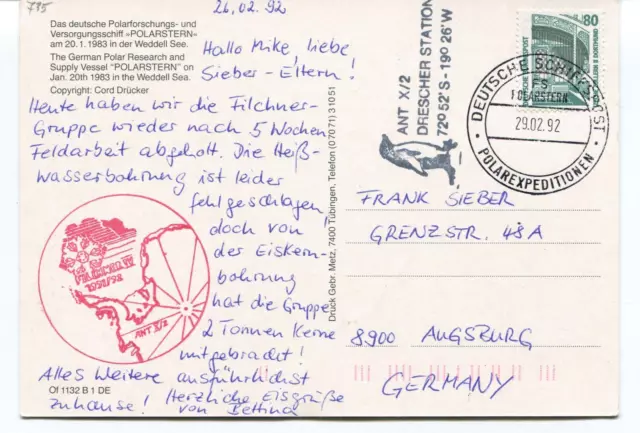 785
26.02.92
Das deutsche Polarforschungs- und
Versorgungsschiff »POLARSTERN«
am 20.1.1983 in der Weddell See.
The German Polar Research and
Supply Vessel "POLARSTERN" on
Jan. 20th 1983 in the Weddell Sea.
Copyright: Cord Drücker
Hallo Mike, liebe
Sieber-Eltern!
Heute haben wir die Filchner-
Gruppe wieder nach 5 Wochen
Feldarbeit abgeholt. Die Heiß-
wasserbohrung ist leider
fehlgeschlagen,
doch von
der Eiskern-
bohrung
hat die Gruppe
2 Tonnen Kerne
mitgebracht!
Alles Weitere ausführlichst
zuhause! Herzliche Eisgrüße
von Bettina
ANTARKTIS
1991/92
ANT X/2
Of 1132 B 1 DE
Druck Gebr. Metz, 7400 Tübingen, Telefon (07071) 31051
ANT X/2
DRESCHER STATION
72°52'S - 19°26'W
80
DEUTSCHE SCHIFFSPOST
FS
POLARSTERN
29.02.92
POLAREXPEDITIONEN
FRANK SIEBER
GRENZSTR. 48A
8900 AUGSBURG
GERMANY